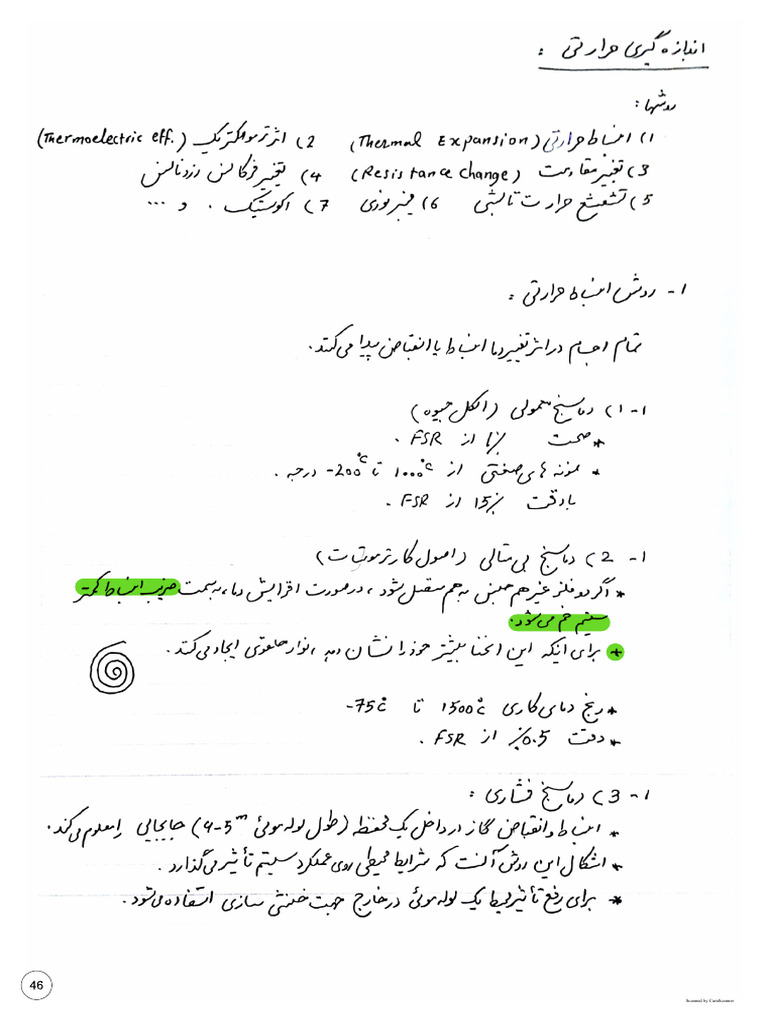 اندازه گیری حرارتی :
روشها :
1) انبساط حرارتی (Thermal Expansion) 2) اثر ترموالکتریک (Thermoelectric eff.)
3) تغییر مقاومت (Resistance change) 4) تغییر فرکانس رزونانس
5) تشعشع حرارت تابشی 6) فیبر نوری 7) اکوستیک . و ...
1- روش انبساط حرارتی :
تمام اجسام در اثر تغییر دما انبساط یا انقباض پیدا می‌کنند.
1-1) دماسنج معمولی (الکل جیوه)
* صحت 1% از FSR .
* نمونه های صنعتی از 1000°C تا -200°C درجه .
با دقت 15% از FSR .
1- 2) دماسنج بی متالی (اصول کار ترموستات)
* اگر دو فلز غیر هم جنس به هم متصل شود ، در صورت افزایش دما، به سمت ضریب انبساط کمتر
سیستم خم می‌شود.
* برای اینکه این انحنا بیشتر خود را نشان دهد ، نوار حلقوی ایجاد می‌کنند .
* رنج دمای کاری 1500°C تا -75°C
* دقت 0.5% از FSR .
1-3) دماسنج فشاری :
* انبساط و انقباض گاز در داخل یک محفظه (طول لوله موئی 4-5m) جابجایی را معلوم می‌کند.
* اشکال این روش آنست که شرایط محیطی روی عملکرد سیستم تأثیر می‌گذارد .
* برای رفع تأثیر محیط یک لوله موئی در خارج جهت خنثی سازی استفاده می‌شود .
46
Scanned by CamScanner